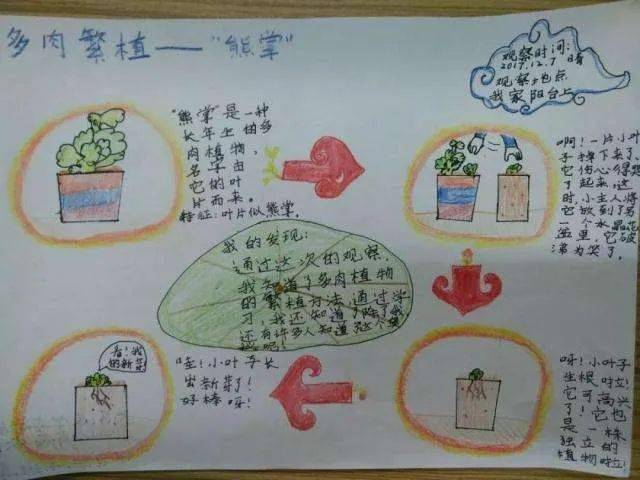 多肉繁植——“熊掌”
观察时间:
2017.12.7 晴
观察地点
我家阳台上
“熊掌”是一种
长年生的多
肉植物,
名字由
它的叶
片而来。
特征:叶片似熊掌。
啊!一片小叶
子掉下来了,
它伤心得哭
了起来,这
时,小主人将
它放到了另
一个水晶花
盆里,它破
涕为笑了。
我的发现:
通过这次的观察,
我知道了多肉植物
的繁植方法,通过学
习,我还知道了除了我
还有许多人知道这个
呢!
呀!小叶子
生根啦!
它可高兴
了!它也
是一株
独立的
植物啦!
哇!小叶子长
出新芽了!
好棒呀!
看!我
的新芽